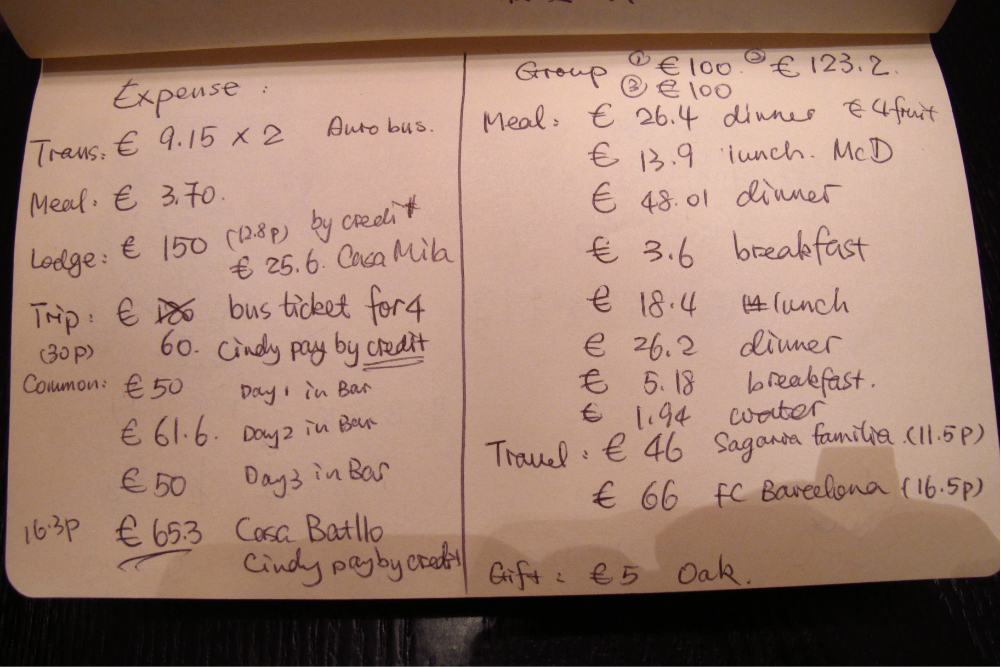 Expense :
Trans: € 9.15 x 2 Aurobus.
Meal: € 3.70.
Lodge: € 150 (12.8p) by credit
€ 25.6. Casa Mila
Trip: € bus ticket for 4
(30p) 60. Cindy pay by credit
Common: € 50 Day 1 in Bar
€ 61.6. Day 2 in Bar
€ 50 Day 3 in Bar
16.3p € 65.3 Casa Batllo
Cindy pay by credit
Group ① € 100. ② € 123.2.
③ € 100
Meal: € 26.4 dinner € 4 fruit
€ 13.9 lunch. McD
€ 48.01 dinner
€ 3.6 breakfast
€ 18.4 lunch
€ 26.2 dinner
€ 5.18 breakfast.
€ 1.94 water
Travel: € 46 Sagaria familia (11.5p)
€ 66 FC Barcelona (16.5p)
Gift: € 5 Oak.